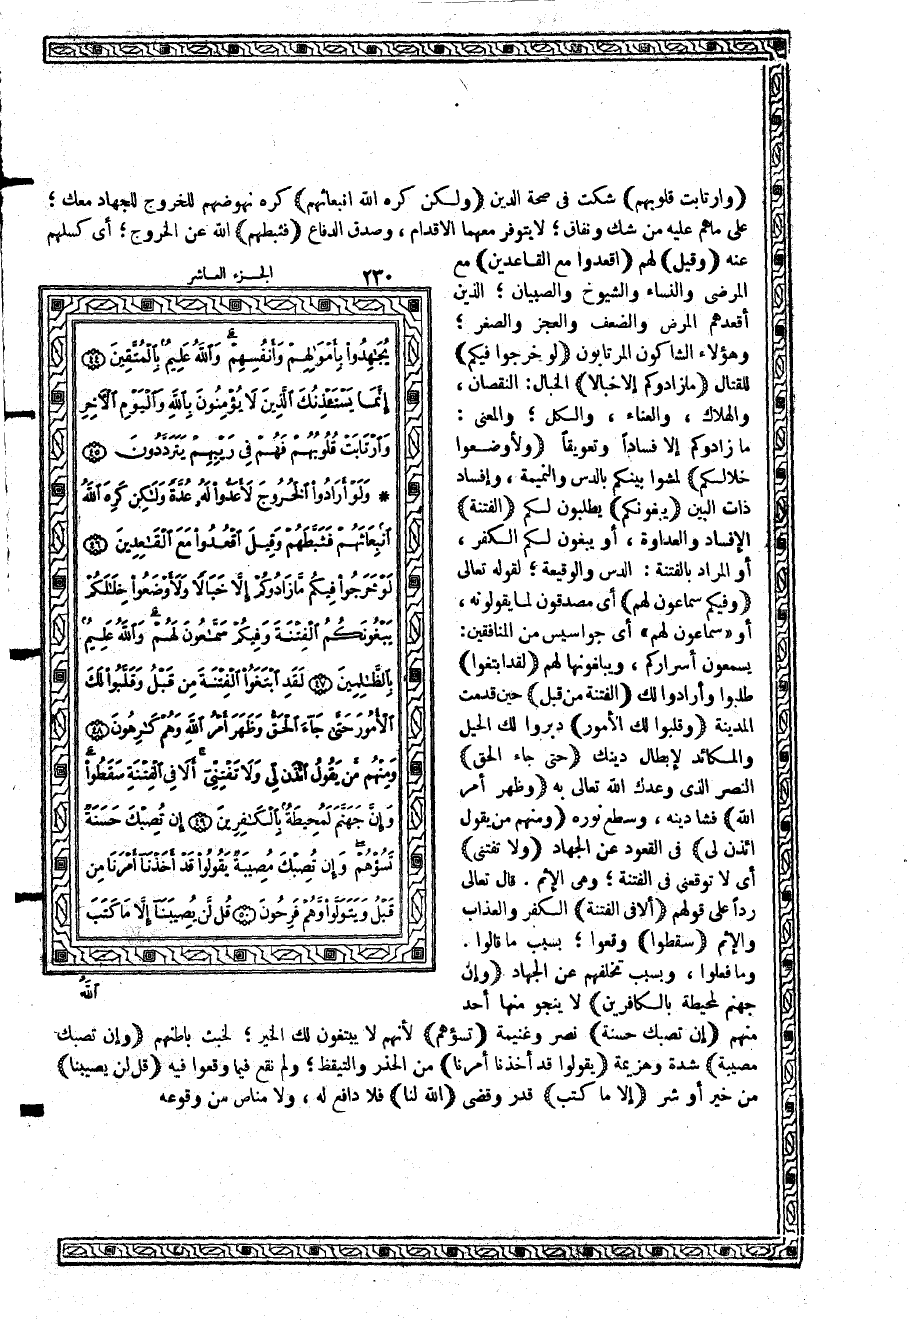 (وارتابت قلوبهم) شكت فى صحة الدين (ولكن كره الله انبعاثهم) كره نهوضهم للخروج للجهاد معك ؛
على ماهم عليه من شك ونفاق ؛ لايتوفر معهما الاقدام ، وصدق الدفاع (فثبطهم) الله عن الخروج ؛ أى كسلهم
عنه (وقيل) لهم (اقعدوا مع القاعدين) مع
المرضى والنساء والشيوخ والصبيان ؛ الذين
أقعدهم المرض والضعف والعجز والصغر ؛
وهؤلاء الشاكون المرتابون (لو خرجوا فيكم)
للقتال (مازادوكم إلا خبالا) الخبال: النقصان ،
والهلاك ، والعناء ، والكل ؛ والمعنى :
ما زادوكم إلا فساداً وتعويقاً (ولأوضعوا
خلالكم) لمشوا بينكم بالدس والنميمة ، وإفساد
ذات البين (يبغونكم) يطلبون لكم (الفتنة)
الإفساد والعداوة ، أو يبغون لكم الكفر ،
أو المراد بالفتنة : الدس والوقيعة ؛ لقوله تعالى
(وفيكم سماعون لهم) أى مصدقون لما يقولونه ،
أو «سماعون لهم» أى جواسيس من المنافقين:
يسمعون أسراركم ، ويبلغونها لهم (لقد ابتغوا)
طلبوا وأرادوا لك (الفتنة من قبل) حين قدمت
المدينة (وقلبوا لك الأمور) دبروا لك الحيل
والمكائد لإبطال دينك (حتى جاء الحق)
النصر الذى وعدك الله تعالى به (وظهر أمر
الله) فشا دينه ، وسطع نوره (ومنهم من يقول
ائذن لى) فى القعود عن الجهاد (ولا تفتنى)
أى لا توقعنى فى الفتنة ؛ وهى الإثم . قال تعالى
رداً على قولهم (ألا فى الفتنة) الكفر والعذاب
والإثم (سقطوا) وقعوا ؛ بسبب ما قالوا .
وما فعلوا ، وبسب تخلفهم عن الجهاد (وإن
جهنم لمحيطة بالكافرين) لا ينجو منها أحد
منهم (إن تصبك حسنة) نصر وغنيمة (تسؤهم) لأنهم لا يبتغون لك الخير ؛ لخبث باطنهم (وإن تصبك
مصيبة) شدة وهزيمة (يقولوا قد أخذنا أمرنا) من الحذر والتيقظ ؛ ولم نقع فيما وقعوا فيه (قل لن يصيبنا)
من خير أو شر (إلا ما كتب) قدر وقضى (الله لنا) فلا دافع له ، ولا مناص من وقوعه
٢٣٠ الجزء العاشر
يُجَٰهِدُوا۟ بِأَمْوَٰلِهِمْ وَأَنفُسِهِمْ ۗ وَٱللَّهُ عَلِيمٌۢ بِٱلْمُتَّقِينَ ﴿٤٤﴾
إِنَّمَا يَسْتَـْٔذِنُكَ ٱلَّذِينَ لَا يُؤْمِنُونَ بِٱللَّهِ وَٱلْيَوْمِ ٱلْـَٔاخِرِ
وَٱرْتَابَتْ قُلُوبُهُمْ فَهُمْ فِى رَيْبِهِمْ يَتَرَدَّدُونَ ﴿٤٥﴾
* وَلَوْ أَرَادُوا۟ ٱلْخُرُوجَ لَأَعَدُّوا۟ لَهُۥ عُدَّةً وَلَٰكِن كَرِهَ ٱللَّهُ
ٱنۢبِعَاثَهُمْ فَثَبَّطَهُمْ وَقِيلَ ٱقْعُدُوا۟ مَعَ ٱلْقَٰعِدِينَ ﴿٤٦﴾
لَوْ خَرَجُوا۟ فِيكُم مَّا زَادُوكُمْ إِلَّا خَبَالًا وَلَأَوْضَعُوا۟ خِلَٰلَكُمْ
يَبْغُونَكُمُ ٱلْفِتْنَةَ وَفِيكُمْ سَمَّٰعُونَ لَهُمْ ۗ وَٱللَّهُ عَلِيمٌۢ
بِٱلظَّٰلِمِينَ ﴿٤٧﴾ لَقَدِ ٱبْتَغَوُا۟ ٱلْفِتْنَةَ مِن قَبْلُ وَقَلَّبُوا۟ لَكَ
ٱلْأُمُورَ حَتَّىٰ جَآءَ ٱلْحَقُّ وَظَهَرَ أَمْرُ ٱللَّهِ وَهُمْ كَٰرِهُونَ ﴿٤٨﴾
وَمِنْهُم مَّن يَقُولُ ٱئْذَن لِّى وَلَا تَفْتِنِّىٓ ۚ أَلَا فِى ٱلْفِتْنَةِ سَقَطُوا۟ ۗ
وَإِنَّ جَهَنَّمَ لَمُحِيطَةٌۢ بِٱلْكَٰفِرِينَ ﴿٤٩﴾ إِن تُصِبْكَ حَسَنَةٌ
تَسُؤْهُمْ ۖ وَإِن تُصِبْكَ مُصِيبَةٌ يَقُولُوا۟ قَدْ أَخَذْنَآ أَمْرَنَا مِن
قَبْلُ وَيَتَوَلَّوا۟ وَّهُمْ فَرِحُونَ ﴿٥٠﴾ قُل لَّن يُصِيبَنَآ إِلَّا مَا كَتَبَ
ٱللَّهُ